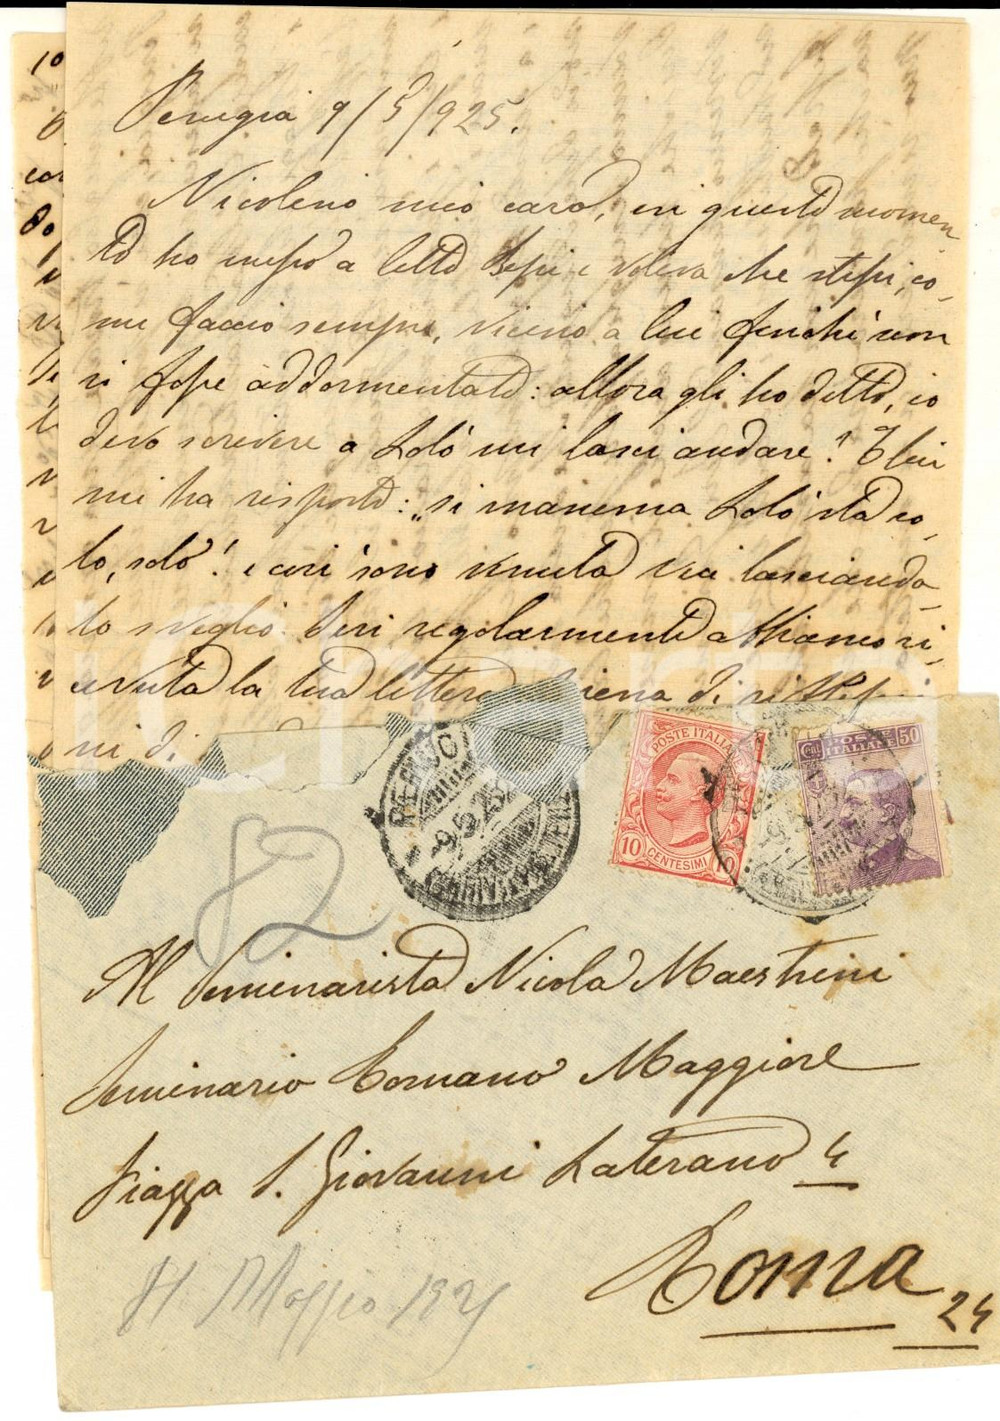 Perugia 9/5/925.
Nicolino mio caro, in questo momen
to ho messo a letto Pepi e voleva che stessi, co-
me faccio sempre, vicino a lui finchè non
si fosse addormentato: allora gli ho detto, io
devo scrivere a Lolò mi lasci andare? E lui
mi ha risposto: „si mamma Lolò sta so-
lo, solo! e così sono venuta via lasciando-
lo sveglio. Ieri regolarmente abbiamo ri-
cevuta la tua lettera piena di
ni di
10
PERUGIA
-9.5.25
POSTE ITALIANE
10 CENTESIMI 10
Cent. 50
POSTE ITALIANE
82
Al Seminarista Nicola Maestrini
Seminario Romano Maggiore
Piazza S. Giovanni Laterano 4
Roma
24
Maggio 1925